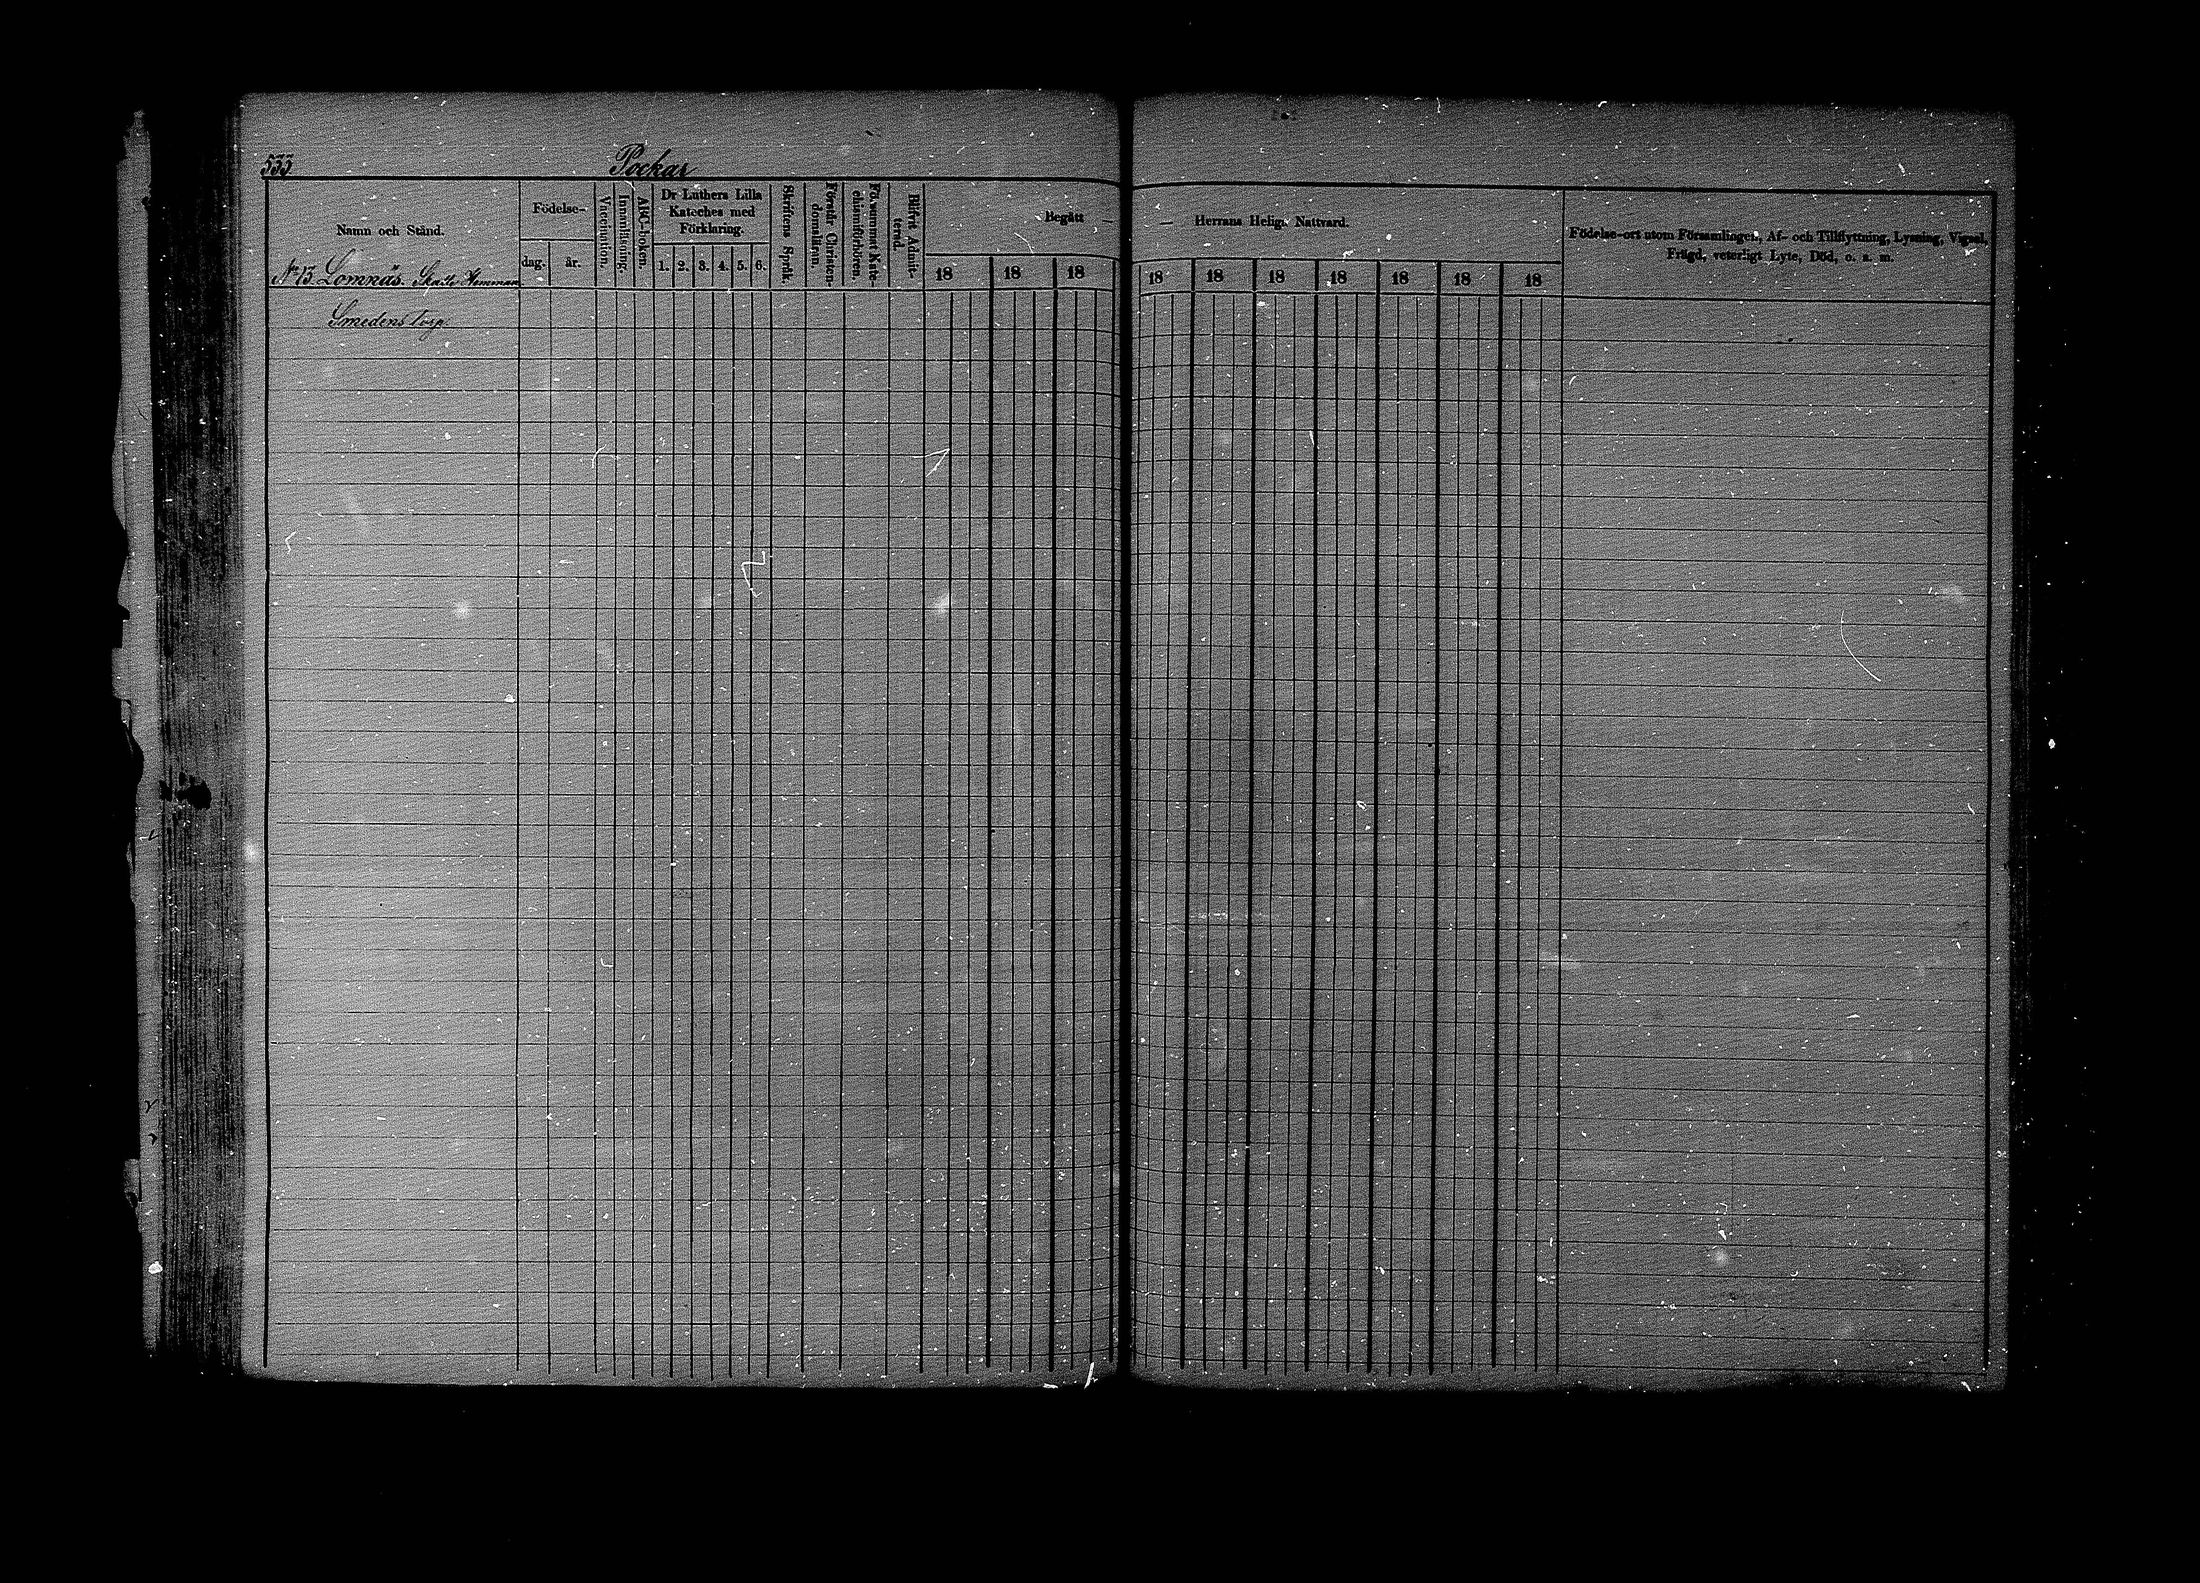 533
Pockar
Namn och Stånd.
Födelse-
dag.
år.
Vaccination.
Innanläsning.
ABC-boken.
Dr Luthers Lilla
Kateches med
Förklaring.
1. 2. 3. 4. 5. 6.
Skriftens Språk.
Förstår Christen-
domslären.
Försummat Kate-
chismiförhören.
Blifvit Admit-
terad.
Begått —
18 18 18
— Herrans Helig. Nattvard.
18 18 18 18 18 18 18
Födelse-ort utom Församlingen, Af- och Tillflyttning, Lysning, Vigsel,
Frägd, veterligt Lyte, Död, o. s. m.
No 13. Lomnäs. Skatte Hemman
Smedens torp.